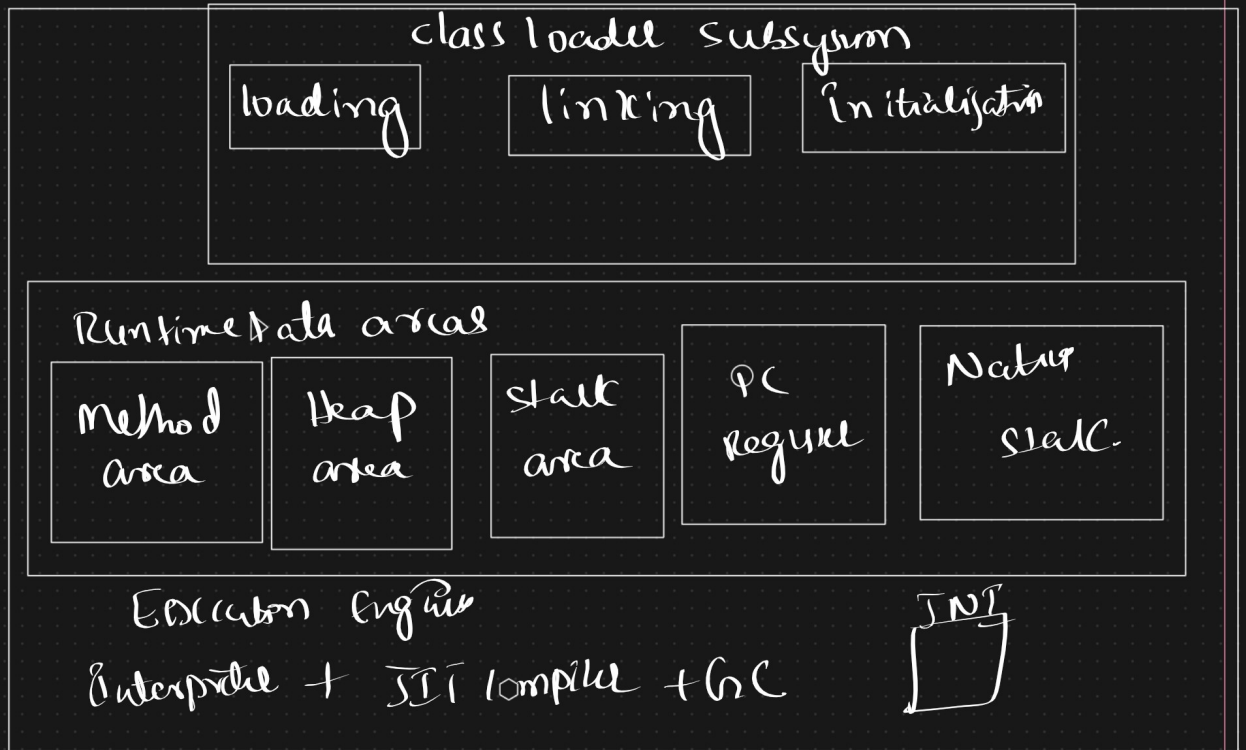 class loader subsystem
loading
linking
initialisation
Runtime Data areas
Method
area
Heap
area
Stack
area
PC
Register
Native
Stack.
Execution Engine
JNI
interpreter + JIT compiler + GC